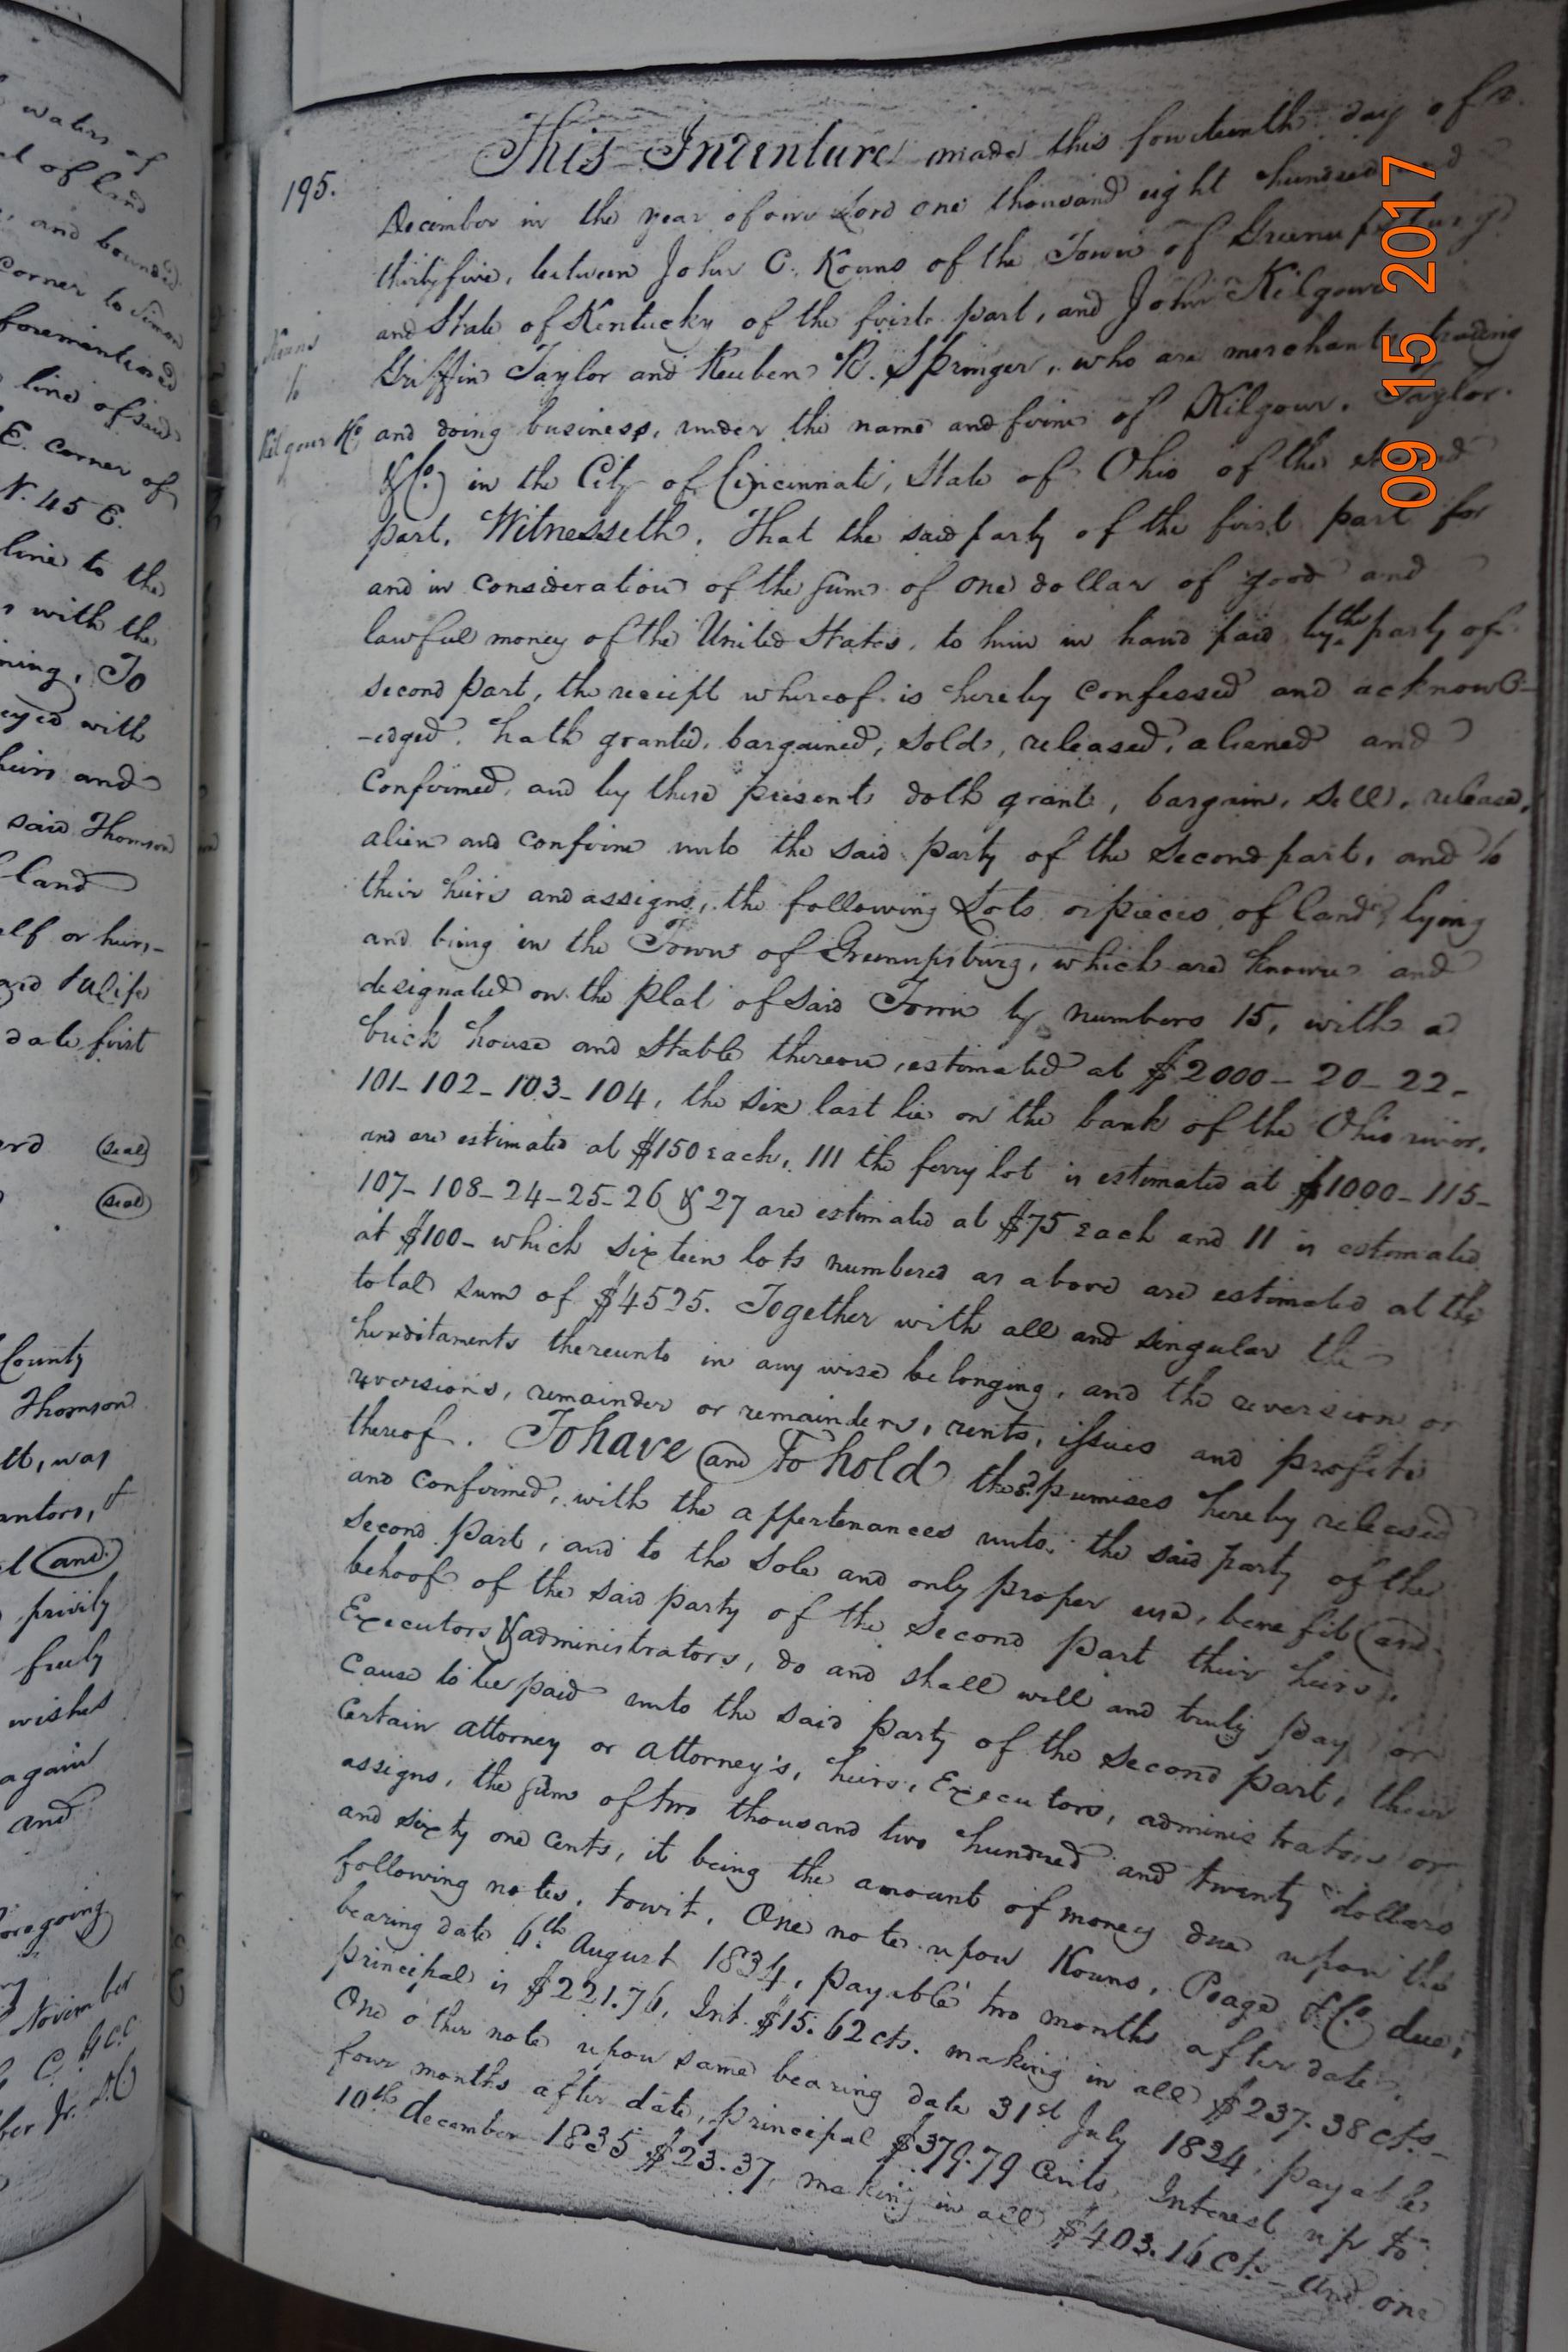 waters of
of land
and bounded
Corner to Simon
forementioned
line of said
E. corner of
N. 45 E.
line to the
with the
To
with
heirs and
said Thomson
land
or heirs,
date first
(seal)
(seal)
County
Thomson
was
(and)
privily
freely
wishes
again
and
November
195.
Kouns
to
Kilgour &c
This Indenture made this fourteenth day of
December in the year of our Lord one thousand eight hundred and
thirty five, between John C. Kouns of the Town of Greenupsburg
and State of Kentucky of the first part, and John Kilgour
Griffin Taylor and Reuben R. Springer, who are merchants trading
and doing business, under the name and firm of Kilgour, Taylor
&Co) in the City of Cincinnati, State of Ohio of the second
part. Witnesseth. That the said party of the first part for
and in consideration of the sum of one dollar of good and
lawful money of the United States, to him in hand paid by the party of
second part, the receipt whereof is hereby confessed and acknowl-
-edged. hath granted, bargained, sold, released, aliened and
Confirmed, and by these presents doth grant, bargain, sell, release,
alien and confirm unto the said party of the second part, and to
their heirs and assigns, the following Lots or pieces of land, lying
and being in the Town of Greenupsburg, which are known and
designated on the plat of said Town by numbers 15, with a
brick house and Stable thereon, estimated at $2000 - 20 - 22 -
101 - 102 - 103 - 104, the six last lie on the bank of the Ohio river,
and are estimated at $150 each, 111 the ferry lot is estimated at $1000 - 115 -
107 - 108 - 24 - 25 - 26 & 27 are estimated at $75 each and 11 is estimated
at $100 - which sixteen lots numbered as above are estimated at the
total sum of $4525. Together with all and singular the
hereditaments thereunto in any wise belonging, and the reversion or
reversions, remainder or remainders, rents, issues and profits
thereof. To have (and) To hold the sd. premises hereby released
and confirmed, with the appertenances unto the said party of the
second part, and to the sole and only proper use, benefit (and
behoof of the said party of the second part their heirs,
Executors & administrators, do and shall well and truly pay or
cause to be paid unto the said party of the second part, their
certain attorney or attorney's, heirs, Executors, administrators or
assigns, the sum of two thousand two hundred and twenty dollars
and sixty one cents, it being the amount of money due upon the
following notes, towit, One note upon Kouns, Poage & Co. due,
bearing date 6th August 1834, payable two months after date,
principal is $221.76, Int. $15.62 cts. making in all $237.38 cts -
One other note upon same bearing date 31st July 1834, payable
four months after date, principal $379.79 Cents, Interest up to
10th december 1835 $23.37, making in all $403.16 cts - And one
09 15 2017